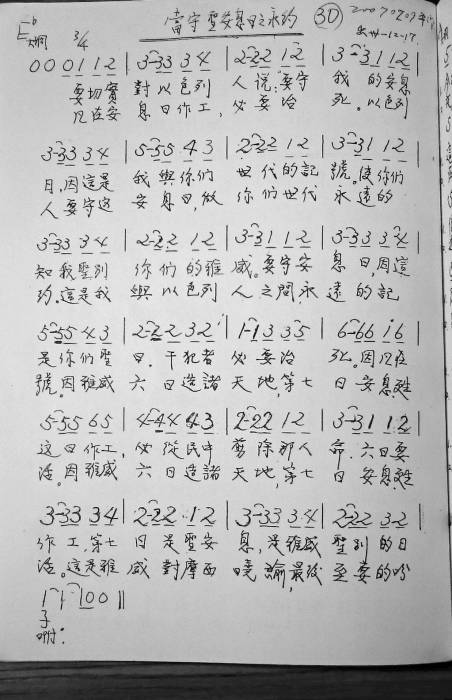 當守聖安息日之永約 30
E♭大調 3/4
0 0 0 1 1 2 | 3-33 3 4 | 2-22 1 2 | 3-31 1 2 |
要切實 對以色列 人説:要守 我的安息
凡在安 息日作工, 必要治 死。以色列
3-33 3 4 | 5-55 4 3 | 2-22 1 2 | 3-31 1 2 |
日,因這是 我與你們 世代的記 號。使你們
人要守这 安息日,做 你们世代 永遠的
3-33 3 4 | 2-22 1 2 | 3-31 1 2 | 3-33 3 4 |
知我聖别 你们的雅 威。要守安 息日,因這
约。這是我 與以色列 人之間永 遠的記
5-55 4 3 | 2-22 3 2 | 1-13 3 5 | 6-66 i 6 |
是你们聖 日。干犯者 必要治 死。因凡在
號。因雅威 六日造諸 天地,第七 日安息甦
5-55 6 5 | 4-44 4 3 | 2-22 1 2 | 3-31 1 2 |
这日作工, 必從民中 剪除那人 命.六日要
活。因雅威 六日造諸 天地,第七 日安息甦
3-33 3 4 | 2-22 1 2 | 3-33 3 4 | 2-22 3 2 |
作工,第七 日是聖安 息,是雅威 聖别的日
活。這是雅 威對摩西 曉諭,最後 至要的吩
1-1-1 0 0 ‖
子
咐: